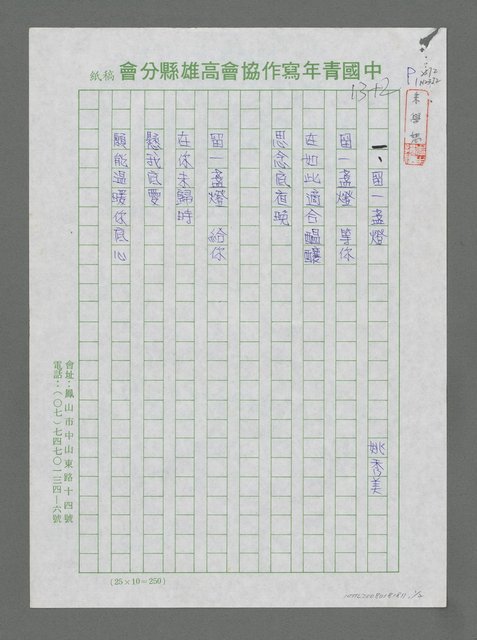 中國青年寫作協會高雄縣分會 稿紙
13+2
一、留一盞燈
姚秀美
留一盞燈 等你
在如此適合醞釀
思念底夜晚
留一盞燈 給你
在你未歸時
懸我底愛
願能溫暖你底心
會址：鳳山市中山東路十四號
電話：（〇七）七四七〇一三四－六號
(25×10=250)